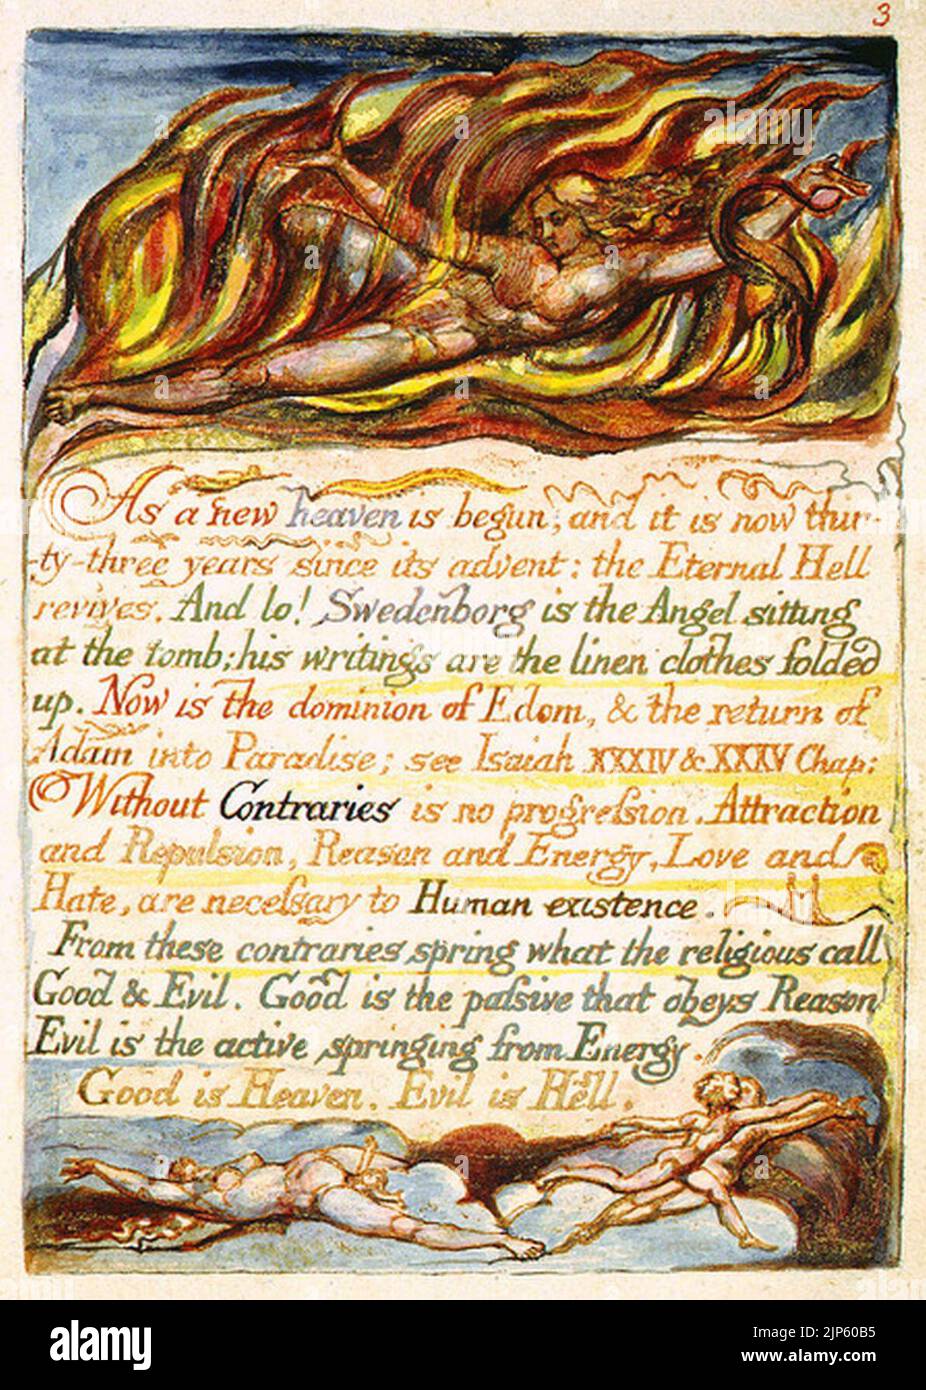 3
As a new heaven is begun, and it is now thir-
-ty-three years since its advent: the Eternal Hell
revives. And lo! Swedenborg is the Angel sitting
at the tomb; his writings are the linen clothes folded
up. Now is the dominion of Edom, & the return of
Adam into Paradise; see Isaiah XXXIV & XXXV Chap:
Without Contraries is no progreſsion. Attraction
and Repulsion, Reason and Energy, Love and
Hate, are neceſsary to Human existence.
From these contraries spring what the religious call
Good & Evil. Good is the paſsive that obeys Reason
Evil is the active springing from Energy.
Good is Heaven. Evil is Hell.
alamy
Image ID: 2JP60B5
www.alamy.com